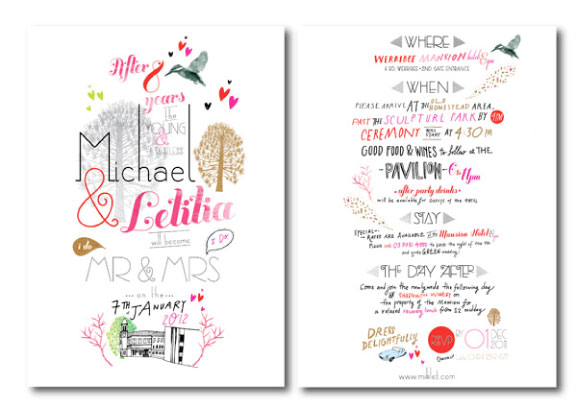 After 8
years
the
YOUNG
&
Michael
& Letitia
will become
i do
I Do
MR & MRS
on the
7TH JANUARY
2012
WHERE
WERRIBEE MANSION
K RD WERRIBEE - 2ND GATE ENTRANCE
WHEN
PLEASE ARRIVE AT THE OLD HOMESTEAD AREA,
PAST THE SCULPTURE PARK BY 4PM
CEREMONY WILL START AT 4:30 PM
GOOD FOOD & WINES to follow in THE
-PAVILION- 6 to 11pm
-after party drinks-
will be available for
STAY
SPECIAL RATES ARE AVAILABLE Mansion Hotel
Please call to save the night of
THE DAY AFTER
Come and join the newlyweds the following day
AT SHADOWFAX WINERY on
the property of the Mansion for
a relaxed lunch from 12 midday
DRESS
DELIGHTFULLY
RSVP BY 01 DEC
2011
www.miklet.com